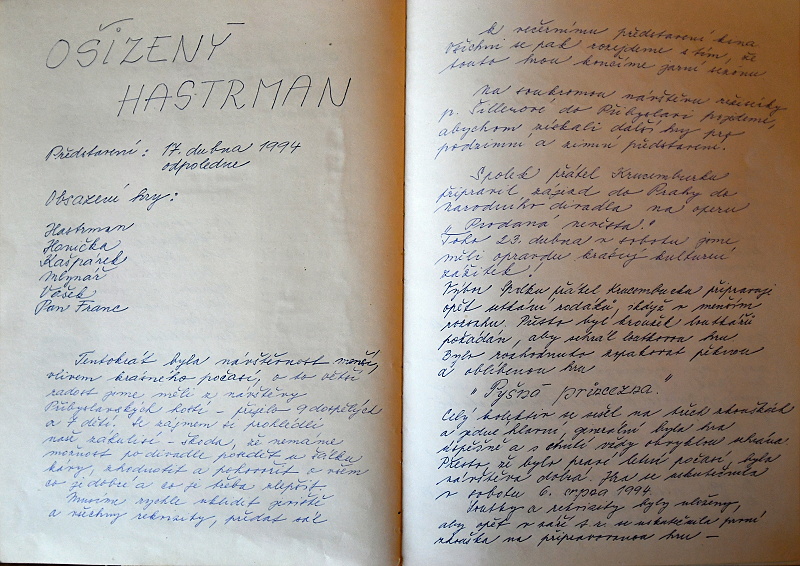 OŠIZENÝ
HASTRMAN
Představení: 17. dubna 1994
odpoledne
Obsazení hry:
Hastrman
Hanička
Kašpárek
Mlynář
Vašek
Pan Franc
Tentokrát byla návštěvnost menší,
vlivem krásného počasí, o to větší
radost jsme měli z návštěvy
Přibyslavských hostí – přijelo 9 dospělých
a 7 dětí. Se zájmem si prohlédli
naše zákulisí – škoda, že nemáme
možnost po divadle posedět u šálku
kávy, zhodnotit a pohovořit o všem
co je dobré a co je třeba zlepšit.
Musíme rychle uklidit jeviště
a všechny rekvizity, předat sál
k večernímu představení kina.
Všichni se pak rozejdeme s tím, že
touto hrou končíme jarní sezónu
Na soukromou návštěvu režisérky
p. Šillerové do Přibyslavi pojedeme,
abychom získali další hry pro
podzimní a zimní představení.
Spolek přátel Krucemburku
připravil zájezd do Prahy do
národního divadla na operu
"Prodaná nevěsta."
Toho 23. dubna v sobotu jsme
měli opravdu krásný kulturní
zážitek!
Výbor Spolku přátel Krucemburku připravuje
opět setkání rodáků, i když v menším
rozsahu. Přesto byl kroužek loutkářů
požádán, aby sehrál loutkovou hru
Bylo rozhodnuto zopakovat pěknou
a oblíbenou hru
"Pyšná princezna."
Celý kolektiv se sešel na třech zkouškách
a jedné hlavní, generální byla hra
úspěšně a s chutí vždy obvyklou sehrána.
Přesto, že bylo pravé letní počasí, byla
návštěva dobrá. Hra se uskutečnila
v sobotu 6. srpna 1994.
Loutky a rekvizity byly uloženy,
aby opět v září t. r. se uskutečnila první
zkouška na připravovanou hru –